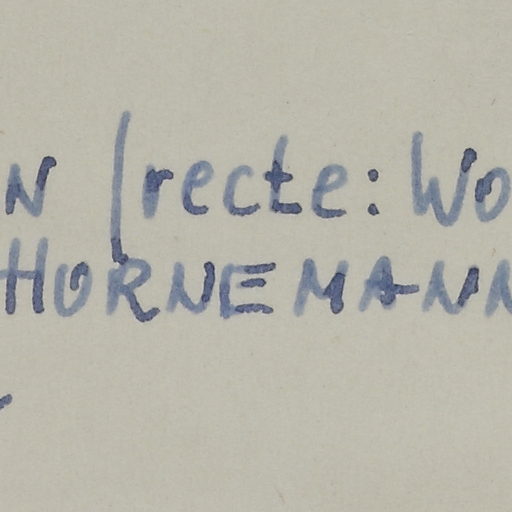 N (recte: Wo
HORNEMANN